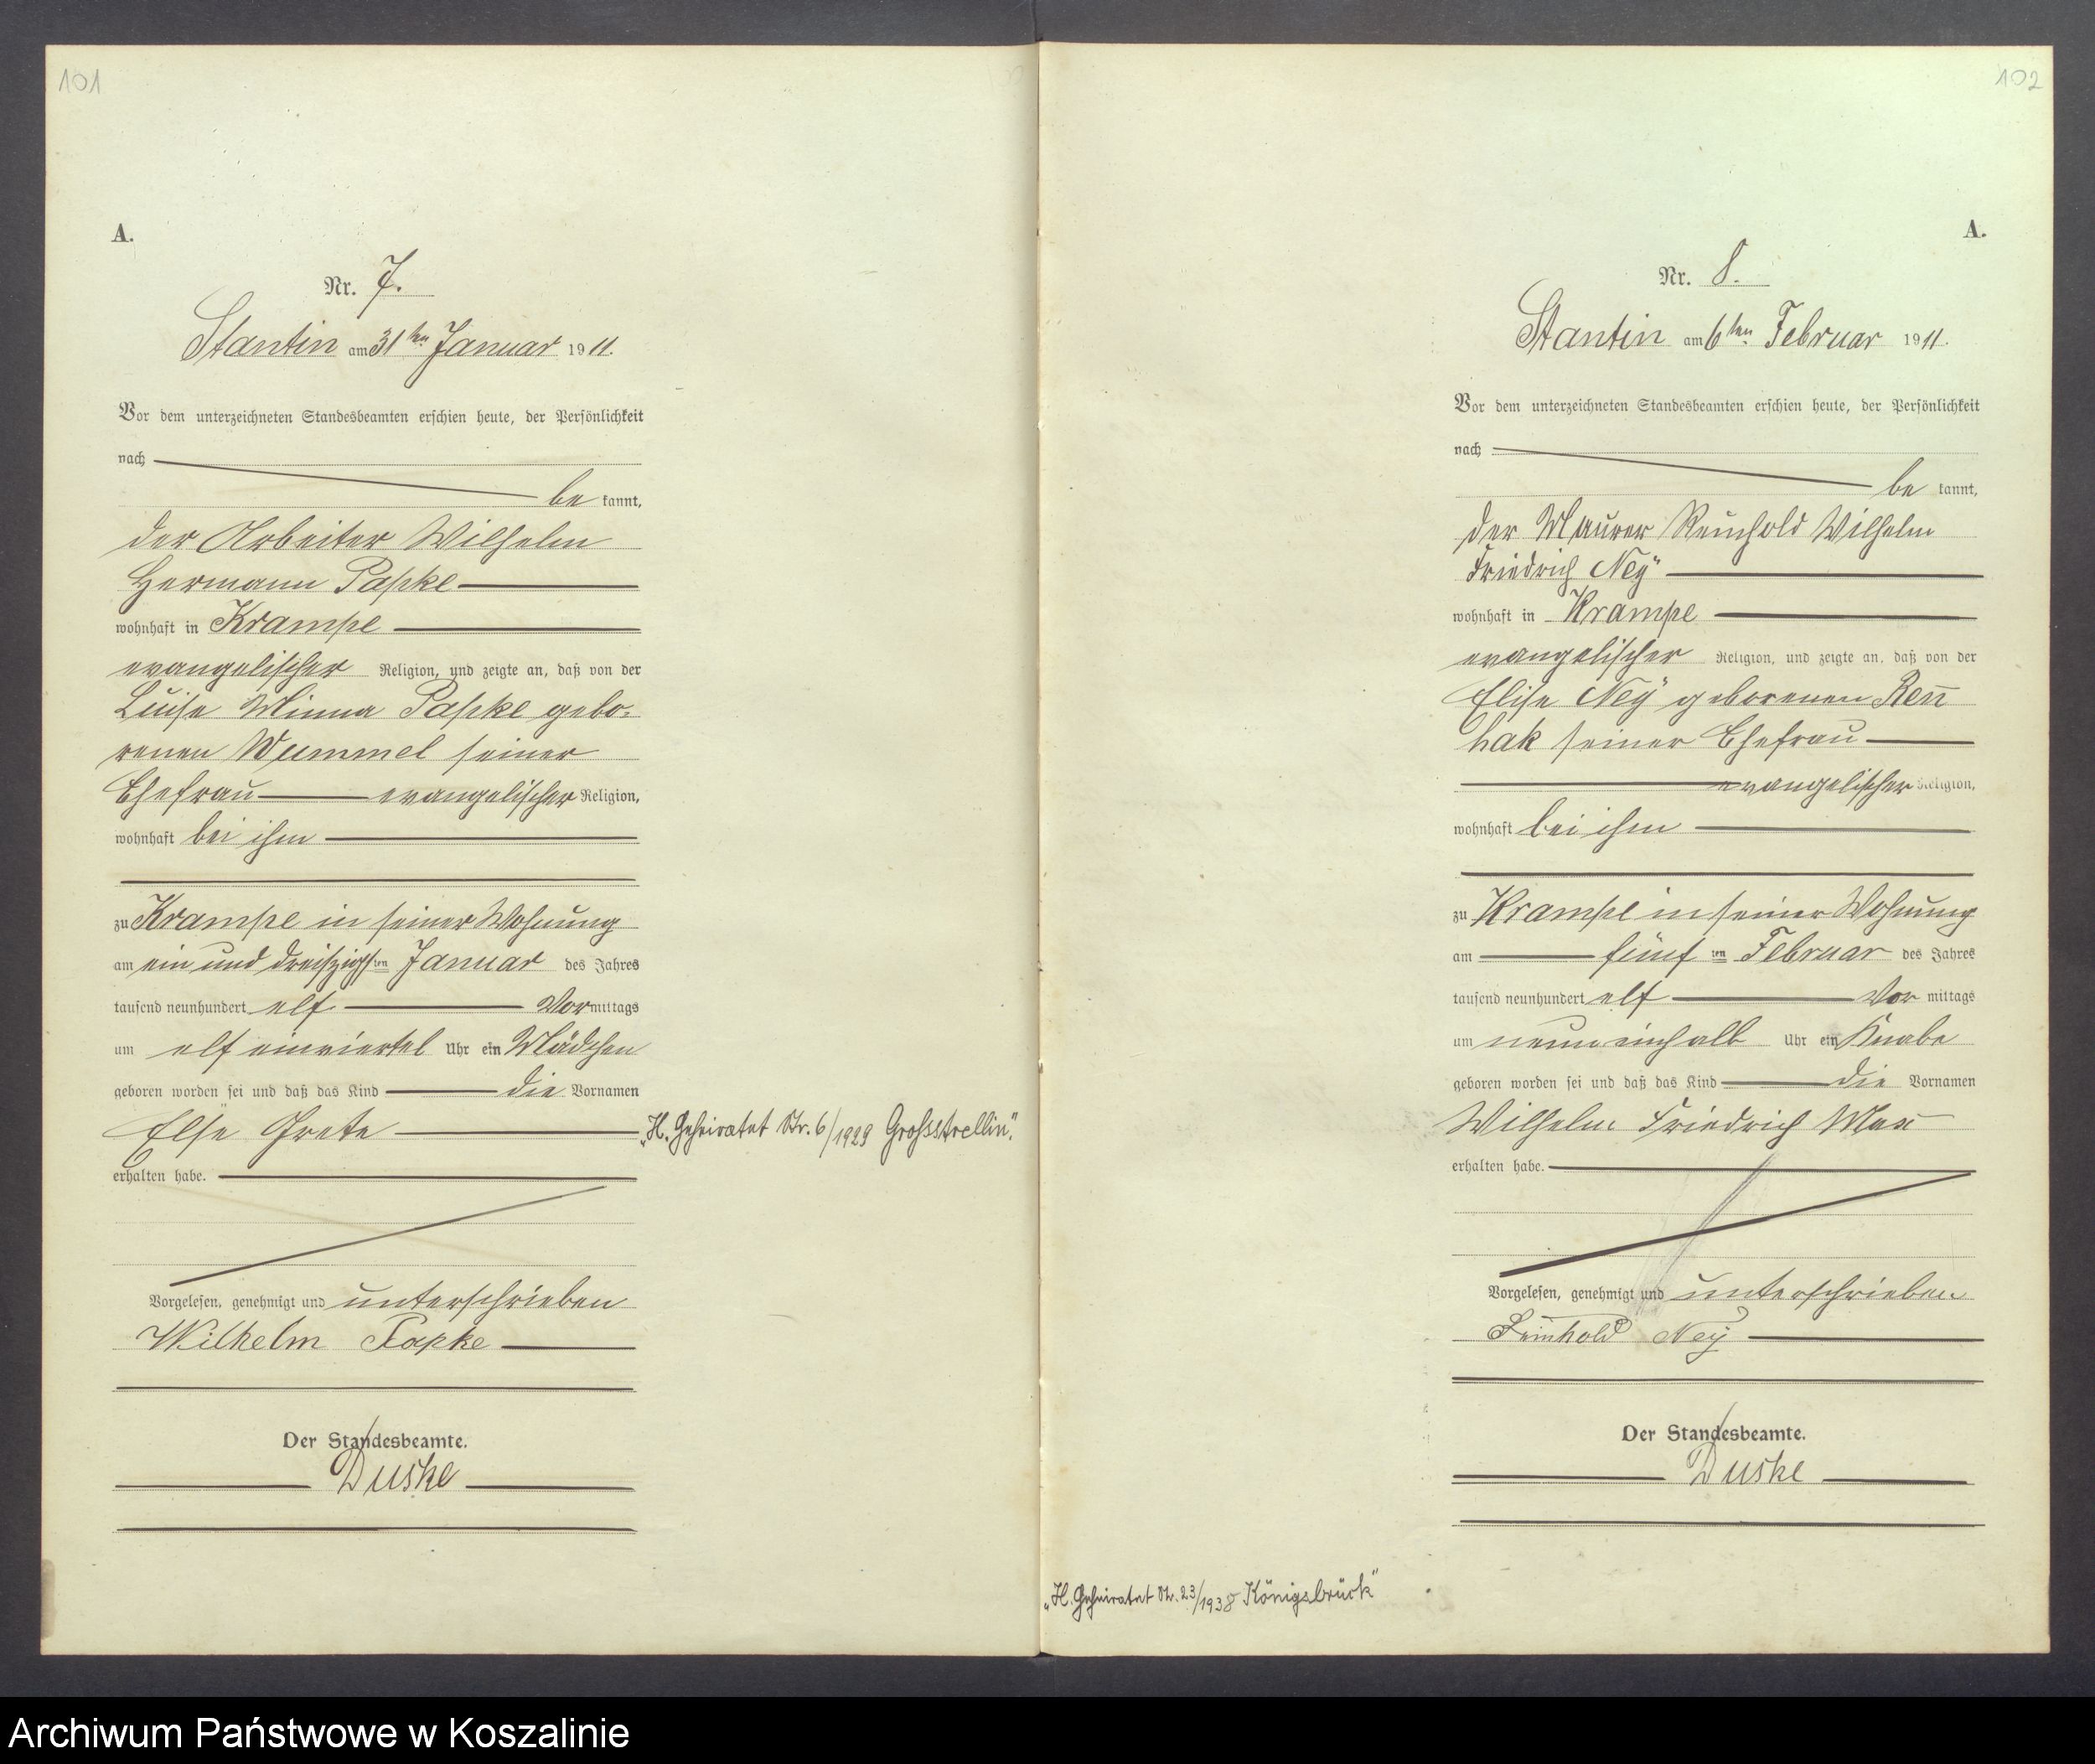 101
A.
Nr. 7.
Stantin am 31ten Januar 1911.
Vor dem unterzeichneten Standesbeamten erschien heute, der Persönlichkeit
nach
be kannt,
der Arbeiter Wilhelm
Hermann Papke
wohnhaft in Krampe
evangelischer Religion, und zeigte an, daß von der
Luise Minna Papke gebo-
renen Wummel seiner
Ehefrau evangelischer Religion,
wohnhaft bei ihm
zu Krampe in seiner Wohnung
am ein und dreiszigsten Januar des Jahres
tausend neunhundert elf Vormittags
um elf einviertel Uhr ein Mädchen
geboren worden sei und daß das Kind die Vornamen
Else Grete
erhalten habe.
Vorgelesen, genehmigt und unterschrieben
Wilhelm Papke
Der Standesbeamte.
Duske
"H. Geheiratet Nr. 6/1929 Grossstrellin".
102
A.
Nr. 8.
Stantin am 6ten Februar 1911.
Vor dem unterzeichneten Standesbeamten erschien heute, der Persönlichkeit
nach
be kannt,
der Maurer Reinhold Wilhelm
Friedrich Ney
wohnhaft in Krampe
evangelischer Religion, und zeigte an, daß von der
Elise Ney geborenen Ren̄
hak seiner Ehefrau
evangelischer Religion,
wohnhaft bei ihm
zu Krampe in seiner Wohnung
am fünf ten Februar des Jahres
tausend neunhundert elf Vor mittags
um neun einhalb Uhr ein Knabe
geboren worden sei und daß das Kind die Vornamen
Wilhelm Friedrich Max
erhalten habe.
Vorgelesen, genehmigt und unterschrieben
Reinhold Ney
Der Standesbeamte.
Duske
"H. Geheiratet Nr. 23/1938 Königsbrück"
Archiwum Państwowe w Koszalinie